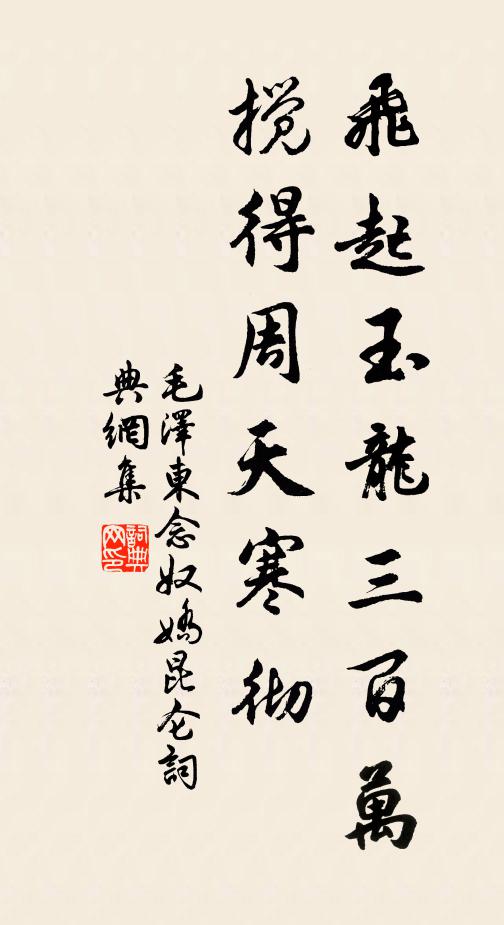 飛起玉龍三百萬
攪得周天寒彻
毛澤東念奴嬌昆仑詞
典網集
詞典
网印